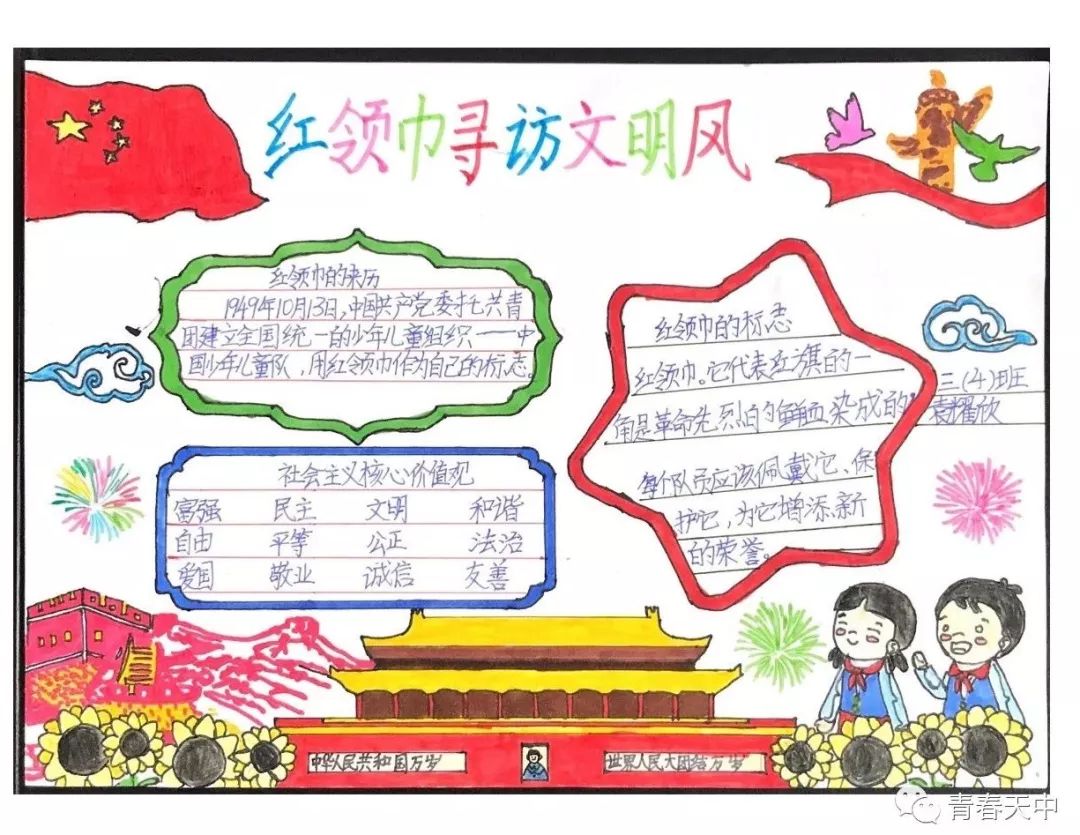 红领巾寻访文明风
红领巾的来历
1949年10月13日,中国共产党委托共青
团建立全国统一的少年儿童组织——中
国少年儿童队,用红领巾作为自己的标志。
社会主义核心价值观
富强 民主 文明 和谐
自由 平等 公正 法治
爱国 敬业 诚信 友善
红领巾的标志
红领巾。它代表红旗的一
角是革命先烈的鲜血染成的
每个队员应该佩戴它、保
护它,为它增添新
的荣誉。
三(4)班
耀欣
中华人民共和国万岁
世界人民大团结万岁
青春天中